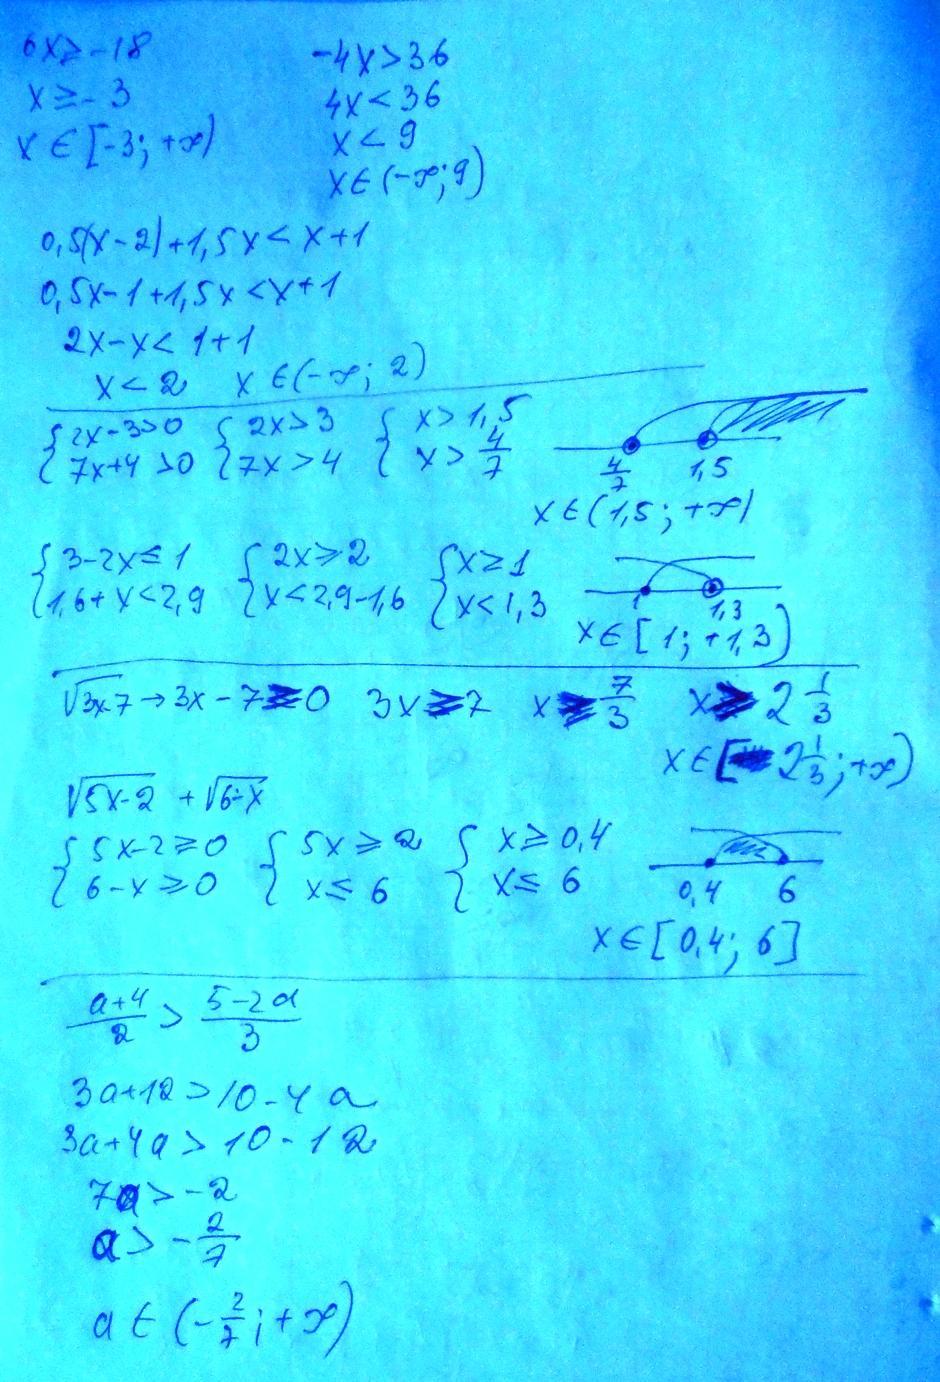 6x ≥ -18
x ≥ -3
x ∈ [-3; +∞)
-4x > 36
4x < 36
x < 9
x ∈ (-∞; 9)
0,5(x-2)+1,5x < x+1
0,5x-1+1,5x < x+1
2x-x < 1+1
x < 2 x ∈ (-∞; 2)
{ 2x-3>0 { 2x>3 { x>1,5
{ 7x+4>0 { 7x>4 { x> 4/7
4/7 1,5
x ∈ (1,5; +∞)
{ 3-2x≤1 { 2x≥2 { x≥1
{ 1,6+x<2,9 { x<2,9-1,6 { x<1,3
1 1,3
x ∈ [1; +1,3)
√3x-7 → 3x-7≥0 3x≥7 x≥ 7/3 x≥ 2 1/3
x ∈ [2 1/3; +∞)
√5x-2 + √6-x
{ 5x-2≥0 { 5x≥2 { x≥0,4
{ 6-x≥0 { x≤6 { x≤6
0,4 6
x ∈ [0,4; 6]
a+4/2 > 5-2a/3
3a+12>10-4a
3a+4a>10-12
7a>-2
a>-2/7
a ∈ (-2/7; +∞)